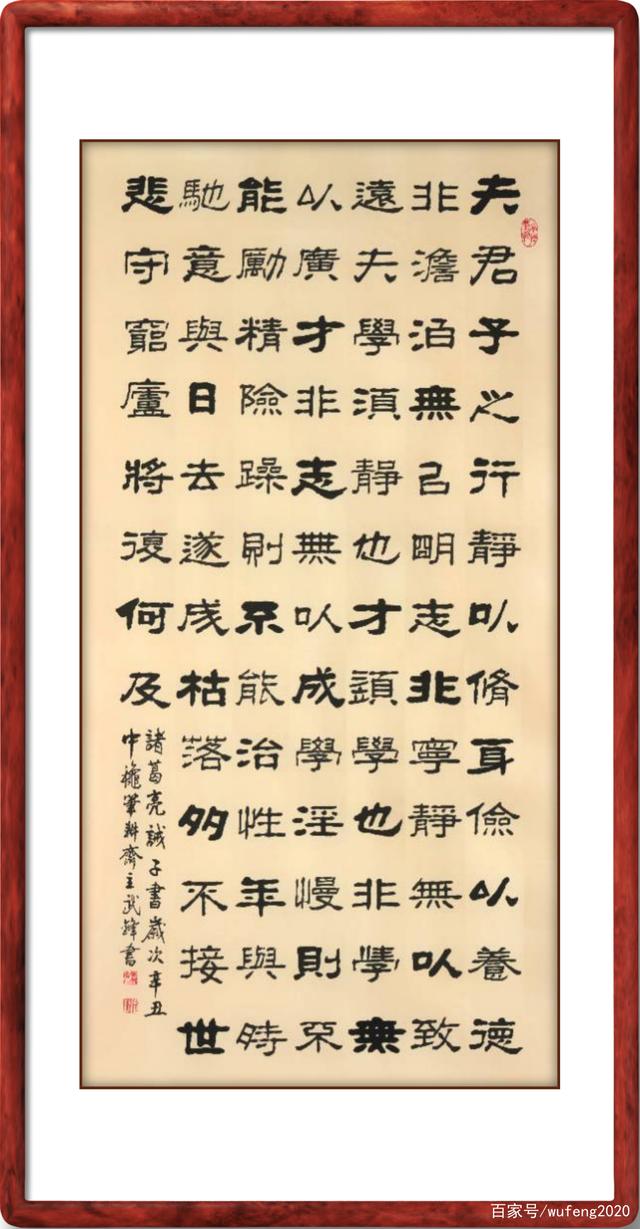 夫君子之行靜以脩身儉以養德
非澹泊無以明志非寧靜無以致
遠夫學須靜也才須學也非學無
以廣才非志無以成學淫慢則不
能勵精險躁則不能治性年與時
馳意與日去遂成枯落多不接世
悲守窮廬將復何及
諸葛亮誡子書歲次辛丑
中龝筆耕齋主武鋒書
百家号/wufeng2020